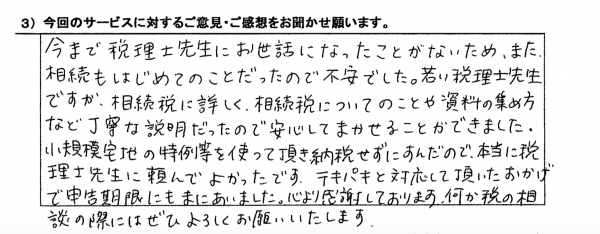 3）今回のサービスに対するご意見・ご感想をお聞かせ願います。
今まで税理士先生にお世話になったことがないため、また、
相続もはじめてのことだったので不安でした。若い税理士先生
ですが、相続税に詳しく、相続税についてのことや資料の集め方
など丁寧な説明だったので安心してまかせることができました。
小規模宅地の特例等を使って頂き納税せずにすんだので、本当に税
理士先生に頼んでよかったです。テキパキと対応して頂いたおかげ
で申告期限にもまにあいました。心より感謝しております。何か税の相
談の際にはぜひよろしくお願いいたします。